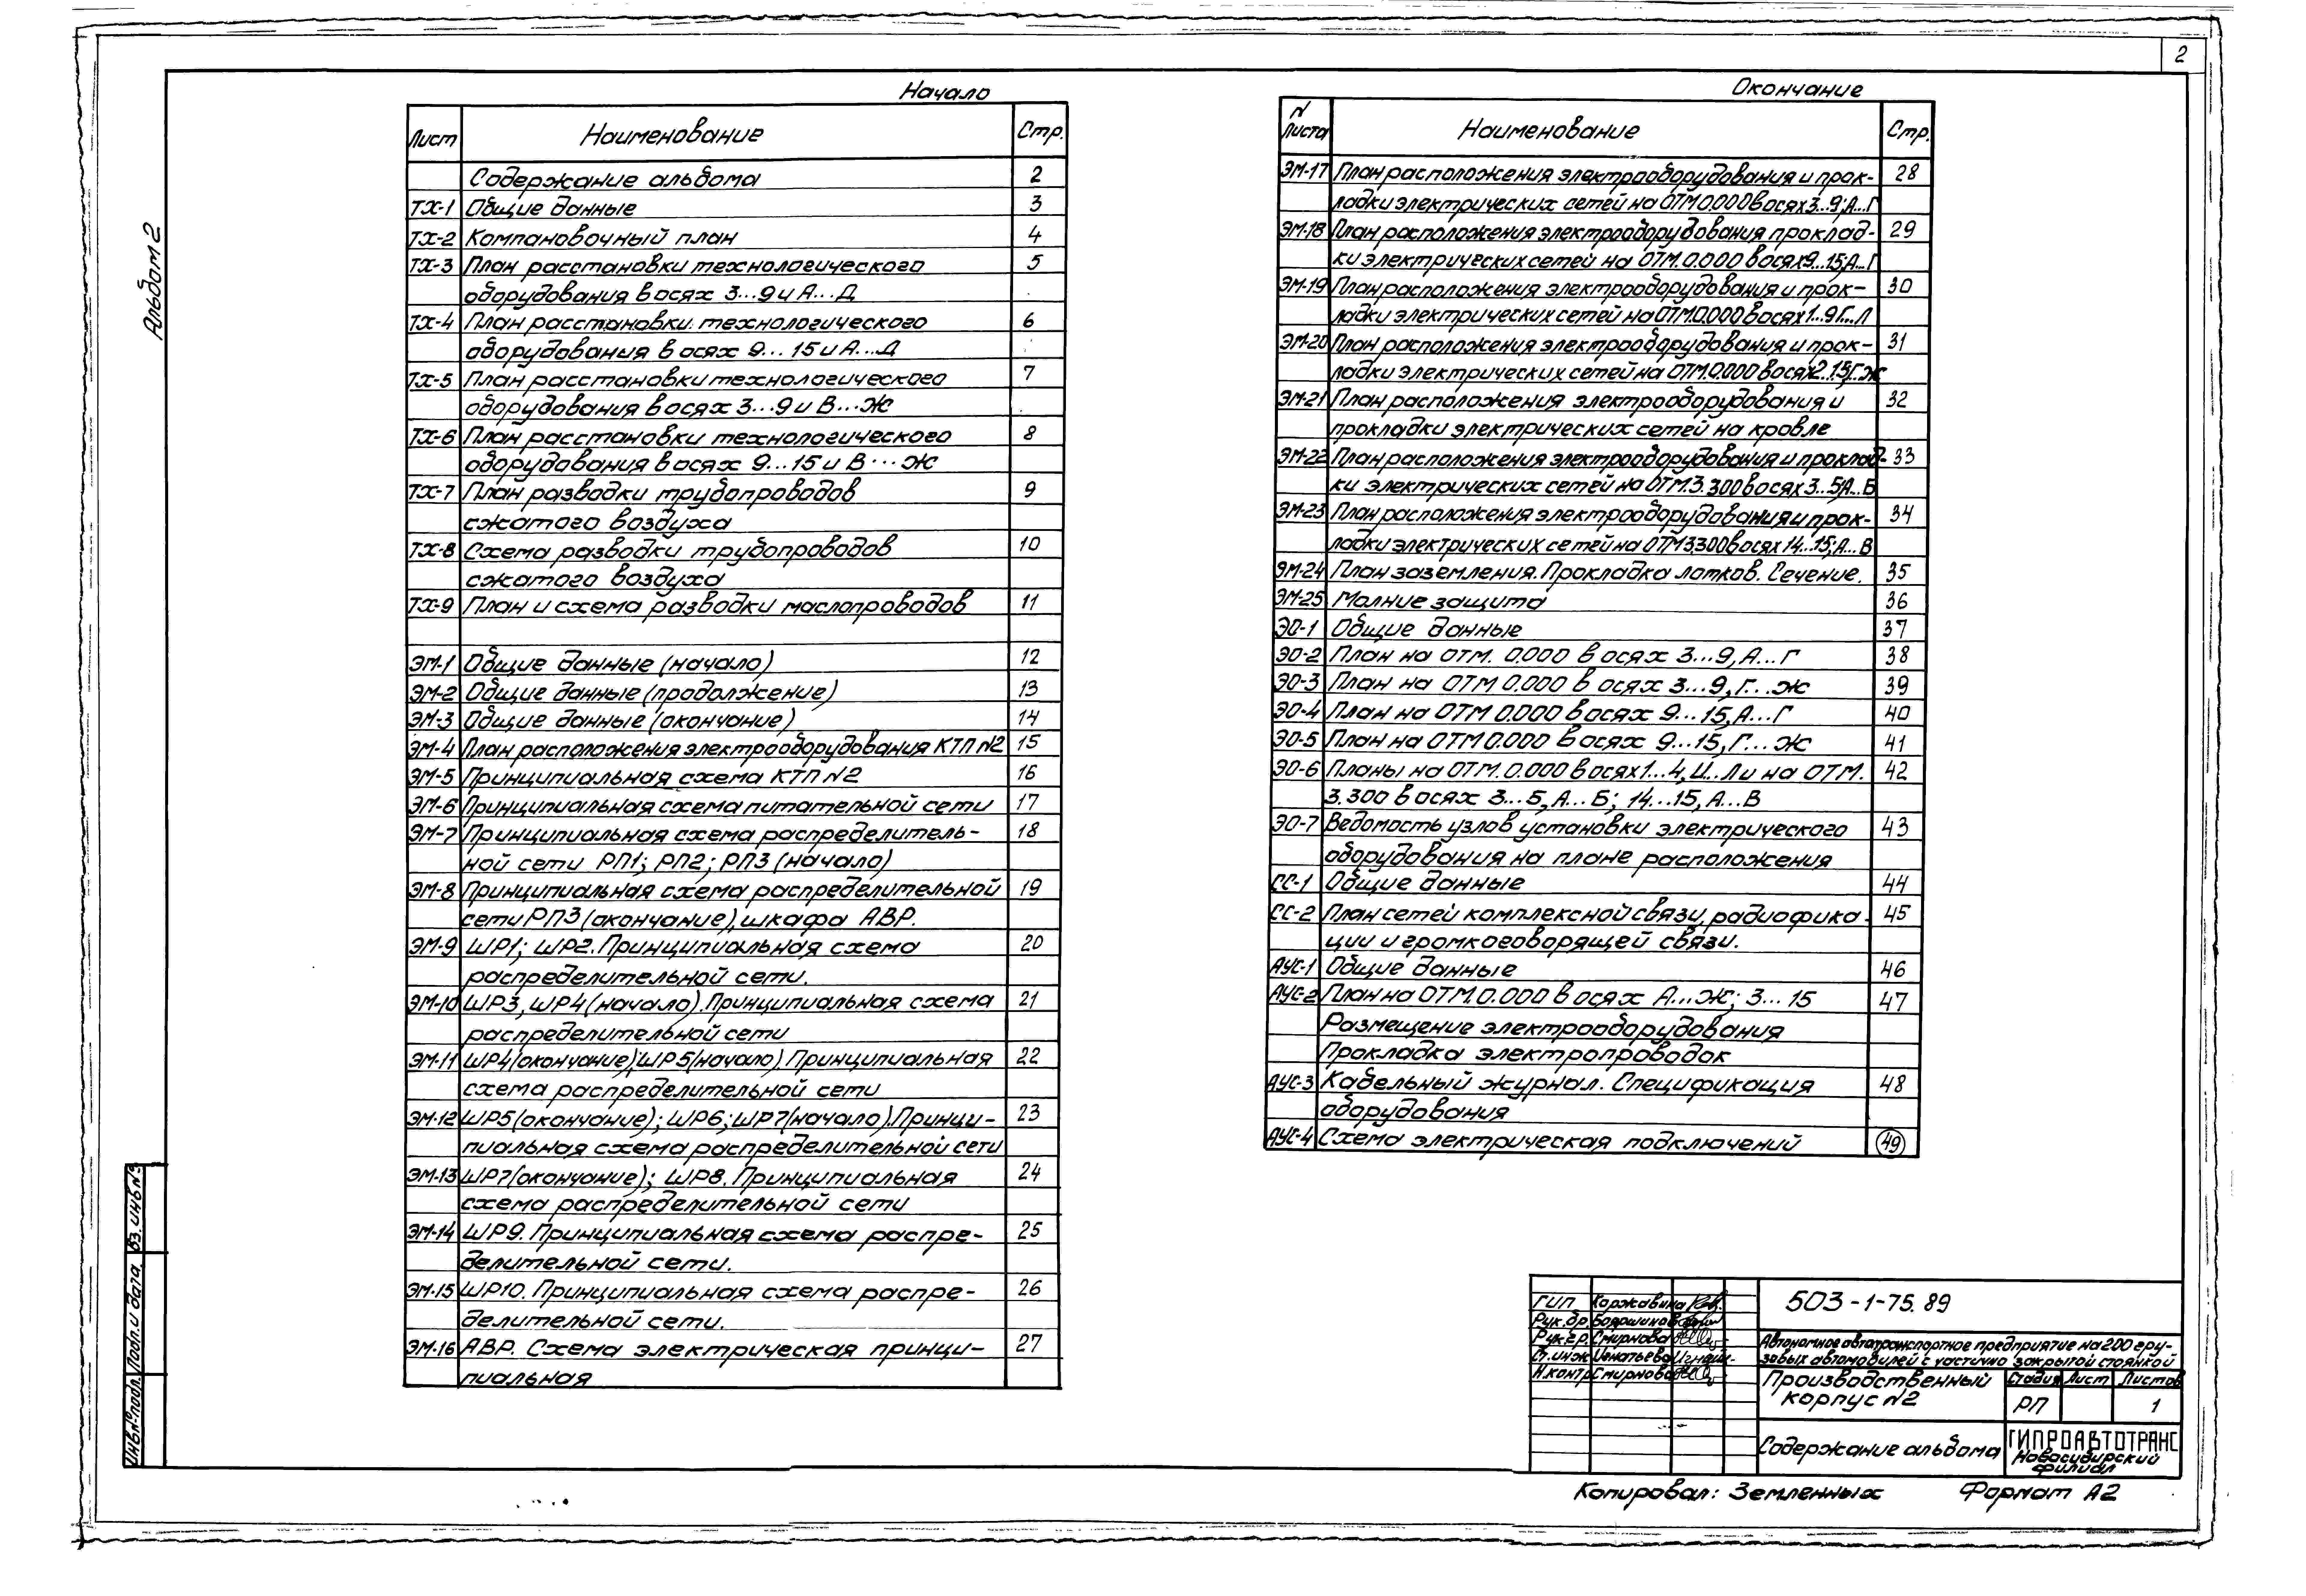 2
Альбом 2
Начало
Лист Наименование Стр.
Содержание альбома 2
ТХ-1 Общие данные 3
ТХ-2 Компановочный план 4
ТХ-3 План расстановки технологического 5
оборудования в осях 3...9 и А...Д
ТХ-4 План расстановки технологического 6
оборудования в осях 9...15 и А...Д
ТХ-5 План расстановки технологического 7
оборудования в осях 3...9 и В...Ж
ТХ-6 План расстановки технологического 8
оборудования в осях 9...15 и В...Ж
ТХ-7 План разводки трубопроводов 9
сжатого воздуха
ТХ-8 Схема разводки трубопроводов 10
сжатого воздуха
ТХ-9 План и схема разводки маслопроводов 11
ЭМ-1 Общие данные (начало) 12
ЭМ-2 Общие данные (продолжение) 13
ЭМ-3 Общие данные (окончание) 14
ЭМ-4 План расположения электрооборудования КТП N2 15
ЭМ-5 Принципиальная схема КТП N2 16
ЭМ-6 Принципиальная схема питательной сети 17
ЭМ-7 Принципиальная схема распределитель- 18
ной сети РП1; РП2; РП3 (начало)
ЭМ-8 Принципиальная схема распределительной 19
сети РП3 (окончание), шкафа АВР.
ЭМ-9 ШР1; ШР2. Принципиальная схема 20
распределительной сети.
ЭМ-10 ШР3, ШР4 (начало). Принципиальная схема 21
распределительной сети
ЭМ-11 ШР4 (окончание); ШР5 (начало). Принципиальная 22
схема распределительной сети
ЭМ-12 ШР5 (окончание); ШР6; ШР7 (начало). Принци- 23
пиальная схема распределительной сети
ЭМ-13 ШР7 (окончание); ШР8. Принципиальная 24
схема распределительной сети
ЭМ-14 ШР9. Принципиальная схема распре- 25
делительной сети.
ЭМ-15 ШР10. Принципиальная схема распре- 26
делительной сети.
ЭМ-16 АВР. Схема электрическая принци- 27
пиальная
Окончание
N Листа Наименование Стр.
ЭМ-17 План расположения электрооборудования и прок- 28
ладки электрических сетей на ОТМ 0.000 в осях 3...9; А...Г
ЭМ-18 План расположения электрооборудования проклад- 29
ки электрических сетей на ОТМ. 0.000 в осях 9...15, А...Г
ЭМ-19 План расположения электрооборудования и прок- 30
ладки электрических сетей на ОТМ. 0.000 в осях 1...9 Г...Л
ЭМ-20 План расположения электрооборудования и прок- 31
ладки электрических сетей на ОТМ. 0.000 в осях 2...15, Г...Ж
ЭМ-21 План расположения электрооборудования и 32
прокладки электрических сетей на кровле
ЭМ-22 План расположения электрооборудования и проклад- 33
ки электрических сетей на ОТМ. 3.300 в осях 3...5, А...Б
ЭМ-23 План расположения электрооборудования и прок- 34
ладки электрических сетей на ОТМ 3.300 в осях 14...15; А...В
ЭМ-24 План заземления. Прокладка лотков. Сечение. 35
ЭМ-25 Молние защита 36
ЭО-1 Общие данные 37
ЭО-2 План на отм. 0.000 в осях 3...9, А...Г 38
ЭО-3 План на ОТМ 0.000 в осях 3...9, Г...Ж 39
ЭО-4 План на ОТМ 0.000 в осях 9...15, А...Г 40
ЭО-5 План на ОТМ 0.000 в осях 9...15, Г...Ж 41
ЭО-6 Планы на ОТМ. 0.000 в осях 1...4, И...Л и на ОТМ. 42
3.300 в осях 3...5, А...Б; 14...15, А...В
ЭО-7 Ведомость узлов установки электрического 43
оборудования на плане расположения
СС-1 Общие данные 44
СС-2 План сетей комплексной связи, радиофика- 45
ции и громкоговорящей связи.
АУС-1 Общие данные 46
АУС-2 План на ОТМ. 0.000 в осях А...Ж; 3...15 47
Размещение электрооборудования
Прокладка электропроводок
АУС-3 Кабельный журнал. Спецификация 48
оборудования
АУС-4 Схема электрическая подключений 49
ГИП Коржавина
Рук.бр. Бояршинов
Рук.гр. Смирнова
Ст.инж Игнатьева
Н.контр Смирнова
503-1-75.89
Автономное автотранспортное предприятие на 200 гру-
зовых автомобилей с частично закрытой стоянкой
Производственный
корпус N2
Стадия Лист Листов
РП 1
Содержание альбома
ГИПРОАВТОТРАНС
Новосибирский
филиал
Копировал: Земленных Формат А2
Инв.N°подл. Подп. и дата Вз. инв N°